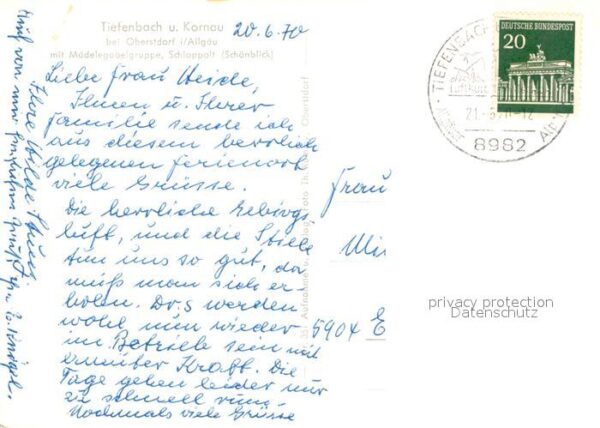 Tiefenbach u. Kornau
bei Oberstdorf i/Allgäu
mit Mädelegabelgruppe, Schlappolt (Schönblick)
20.6.70
Liebe Frau Weide,
Ihnen u. Ihrer
Familie sende ich
aus diesem herrlich
gelegenen Ferienort
viele Grüsse.
Die herrliche Gebirgs
luft, und die Stille
tun uns so gut, da
muß man sich er-
holen. Dr,s werden
wohl nun wieder
im Betriebe sein mit
erneuter Kraft. Die
Tage gehen leider nur
zu schnell rum.
Nochmals viele Grüsse
Ihre Hilde
Auch von mir
Aufnahme u. Verlag Foto
Oberstdorf
Frau
5904 E
DEUTSCHE BUNDESPOST
20
TIEFENBACH
8982
privacy protection
Datenschutz